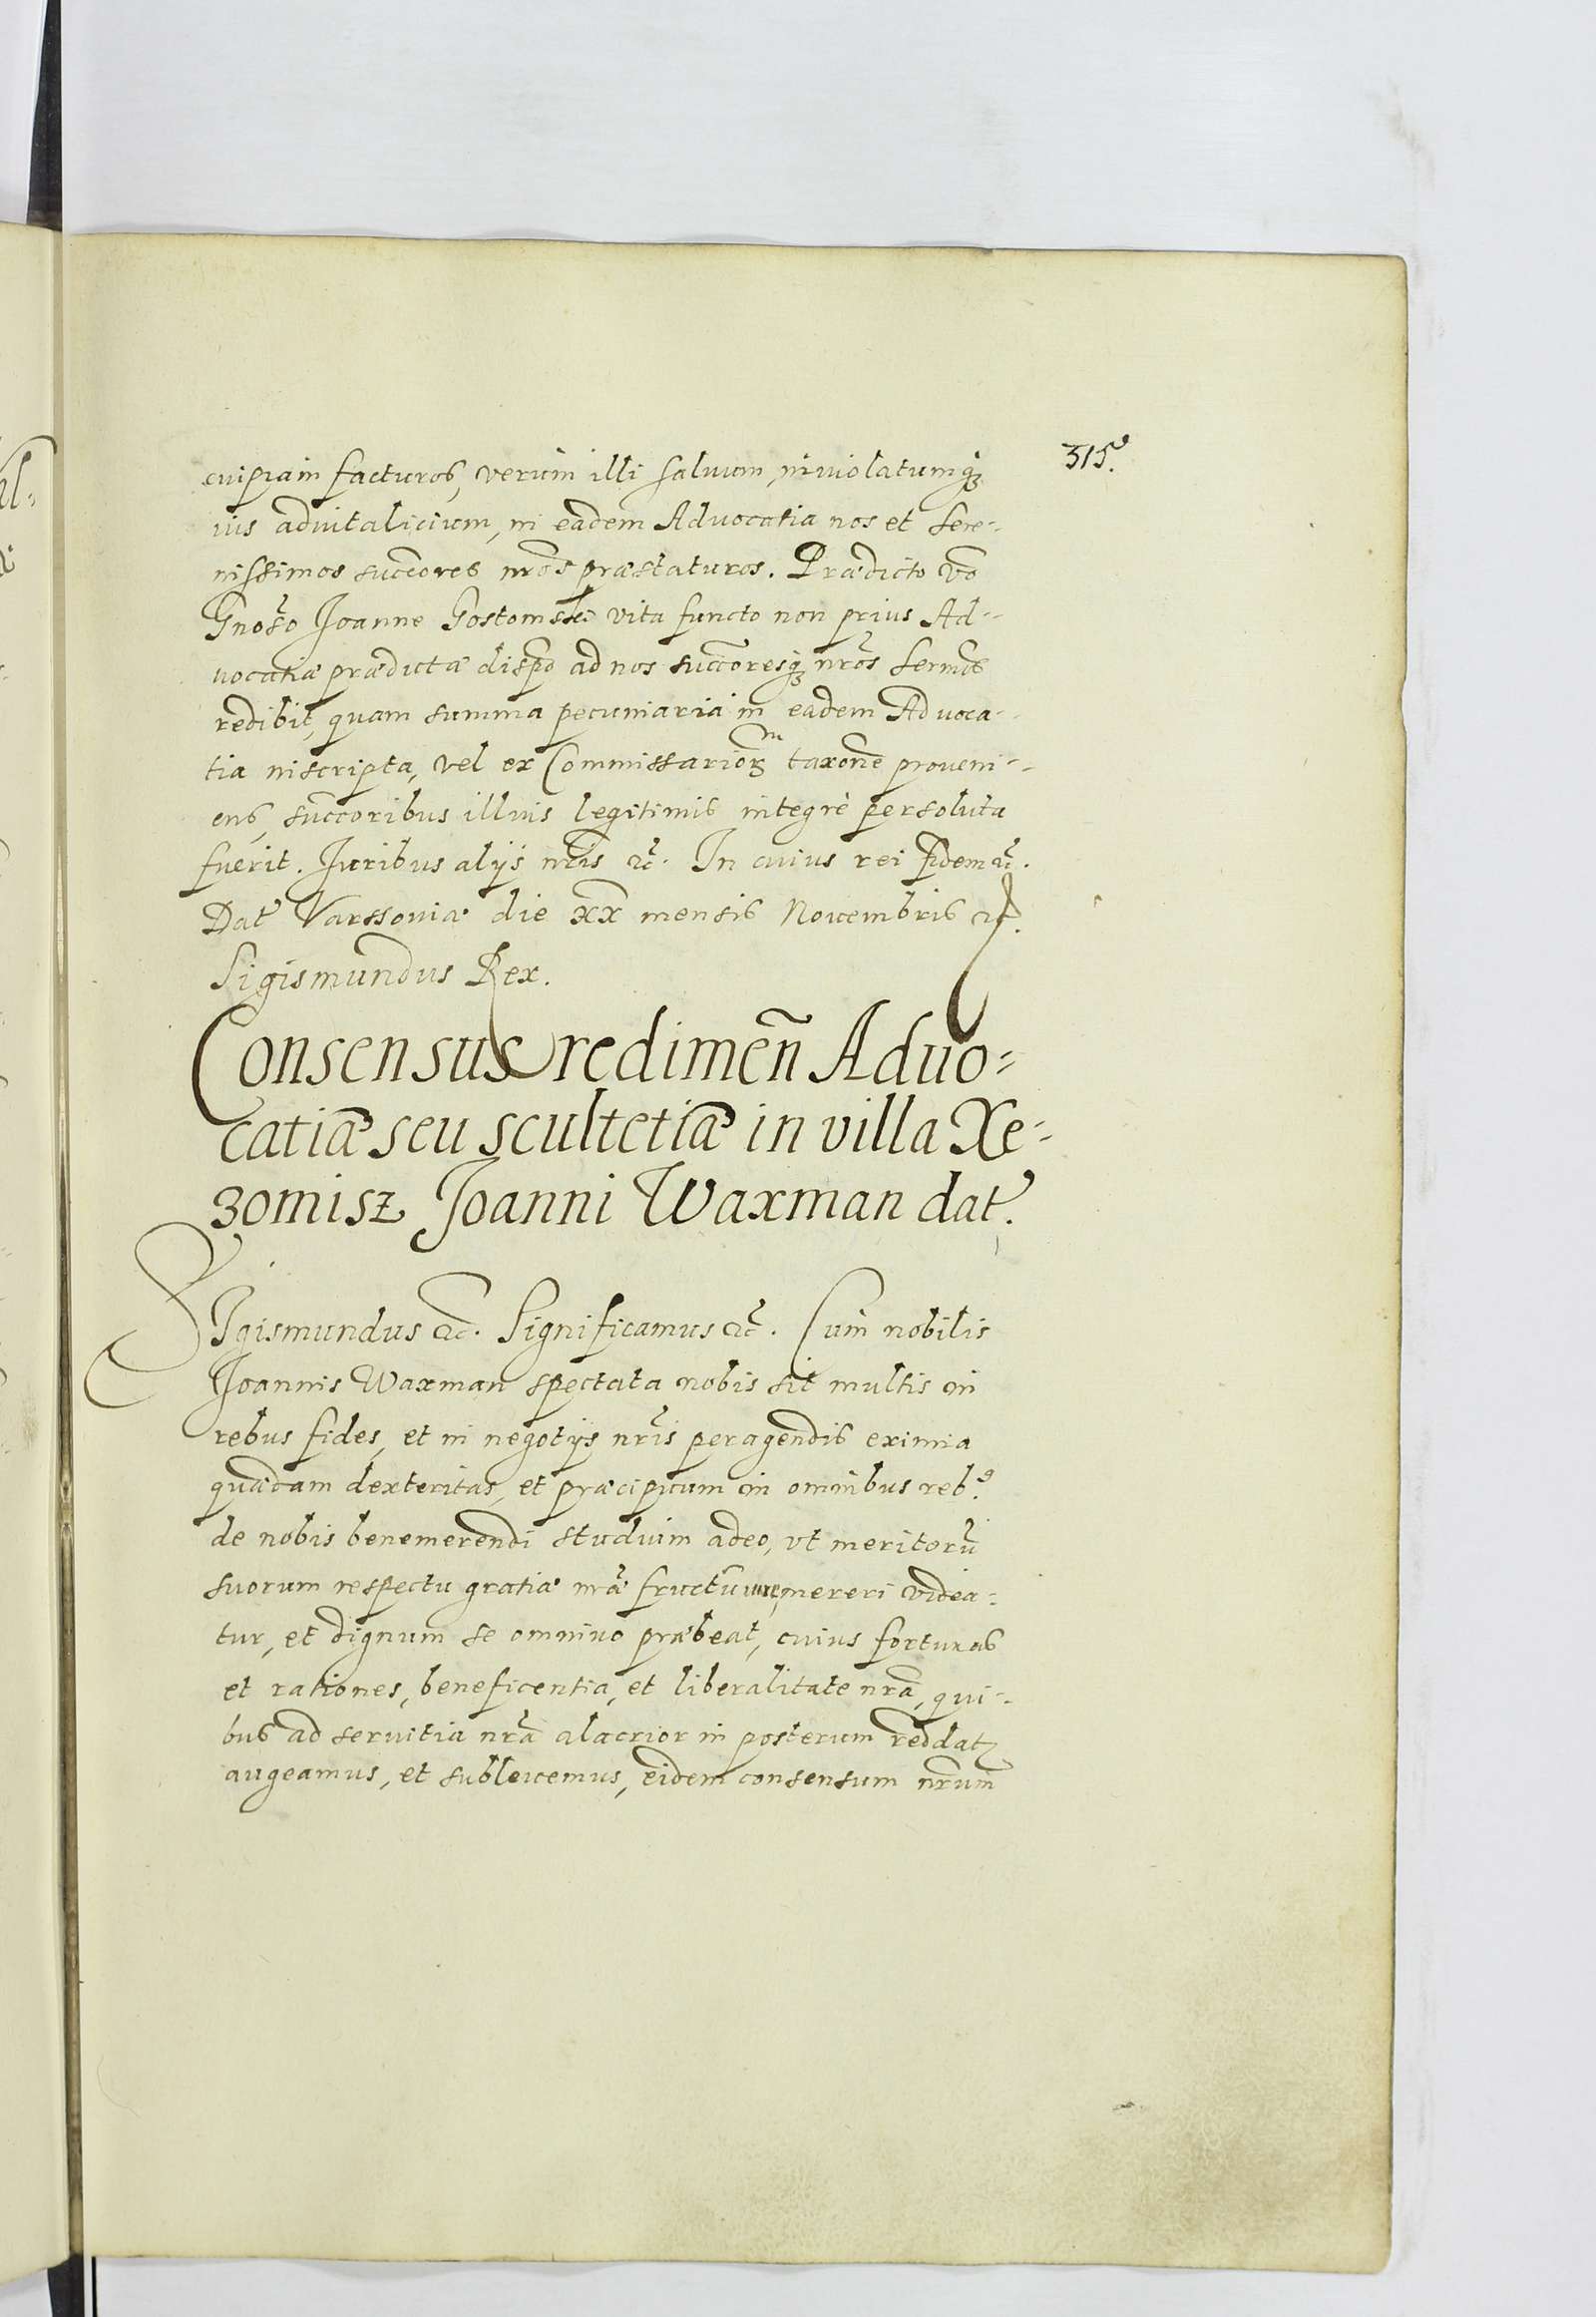 315.
cuipiam facturos, verum illi saluum, inuiolatumq́3
ius aduitalicium, in eadem Advocatia nos et Sere-
nissimos succeores nros præstaturos. Prædicto vo
Gnoso Joanne Gostomski vita functo non prius Ad-
uocatiæ prædictæ dispo ad nos succoresq3 nros sermos
redibit, quam summa pecuniaria in eadem Advoca-
tia inscripta, vel ex Commissarior taxone proueni-
ens, succoribus illius legitimis integrè persoluta
fuerit. Juribus alijs nris &c. In cuius rei fidem &c.
Dat Varssouiæ die xx mensis Nouembris &c.
Sigismundus Rex.
Consensus redimen Aduo-
catiæ seu scultetiæ in villa Xe-
zomisz Joanni Waxman dat.
SIgismundus &c. Significamus &c. Cum nobilis
Joannis Waxman spectata nobis sit multis in
rebus fides, et in negotijs nris peragendis eximia
quædam dexteritas, et præcipuum in omnibus reb9
de nobis benemerendi studium adeo, vt meritorũ
suorum respectu gratiæ nræ fructũ mereri videa-
tur, et dignum se omnino præbeat, cuius fortunas
et rationes, beneficentia, et liberalitate nra, qui-
bus ad seruitia nra alacrior in posterum reddat
augeamus, et subleuemus, eidem consensum nrum